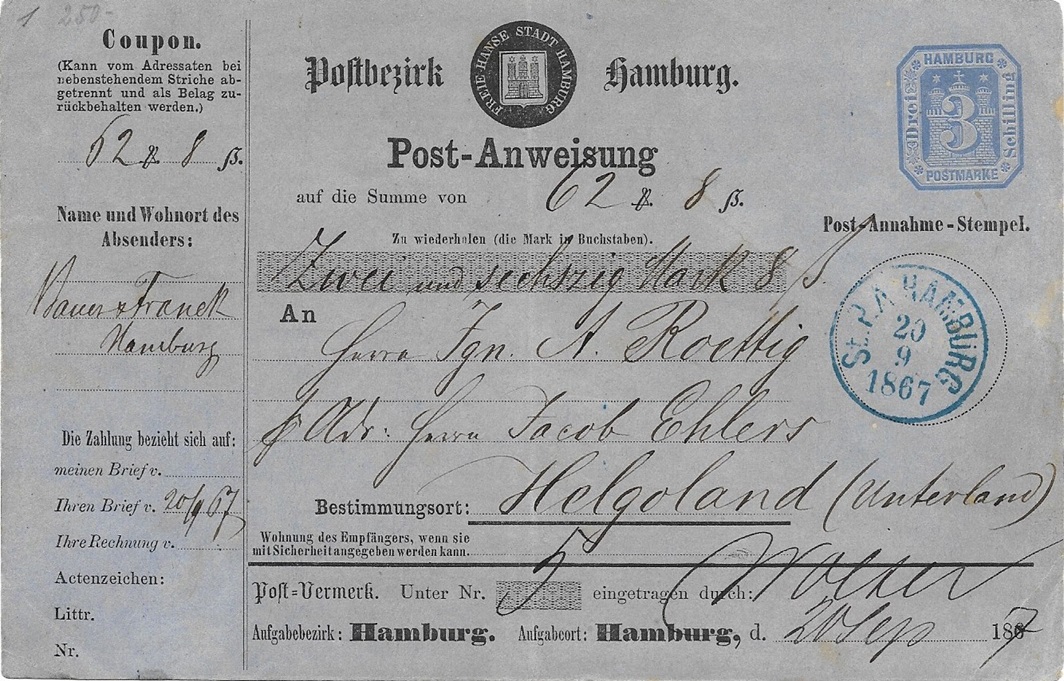 1 250-
Coupon.
(Kann vom Adressaten bei
nebenstehendem Striche ab-
getrennt und als Belag zu-
rückbehalten werden.)
62 ₰ 8 ß.
Name und Wohnort des
Absenders:
Bauer & Franck
Hamburg
Die Zahlung bezieht sich auf:
meinen Brief v.
Ihren Brief v. 20/9 67
Ihre Rechnung v.
Actenzeichen:
Littr.
Nr.
Postbezirk Hamburg.
FREIE HANSE STADT HAMBURG
Post-Anweisung
auf die Summe von 62 ₰ 8 ß.
Zu wiederholen (die Mark in Buchstaben).
Zwei und sechszig Mark 8 ß
An
Herrn Ign. A. Roettig
p Adr: Herrn Jacob Ehlers
Bestimmungsort: Helgoland (Unterland)
Wohnung des Empfängers, wenn sie
mit Sicherheit angegeben werden kann.
Post-Vermerk. Unter Nr. 5 eingetragen durch:
Aufgabebezirk: Hamburg. Aufgabeort: Hamburg, d. 20 Sep 1867
HAMBURG
Drei 3 Schilling
POSTMARKE
Post-Annahme-Stempel.
St. P. A. HAMBURG
20
9
1867